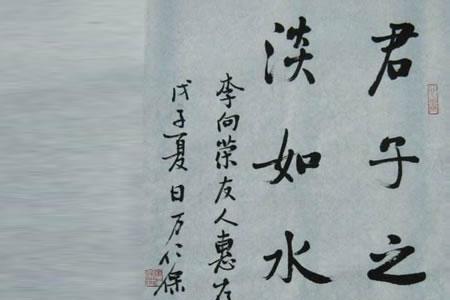 君子之
淡如水
李向荣友人惠存
戊子夏日万仁保